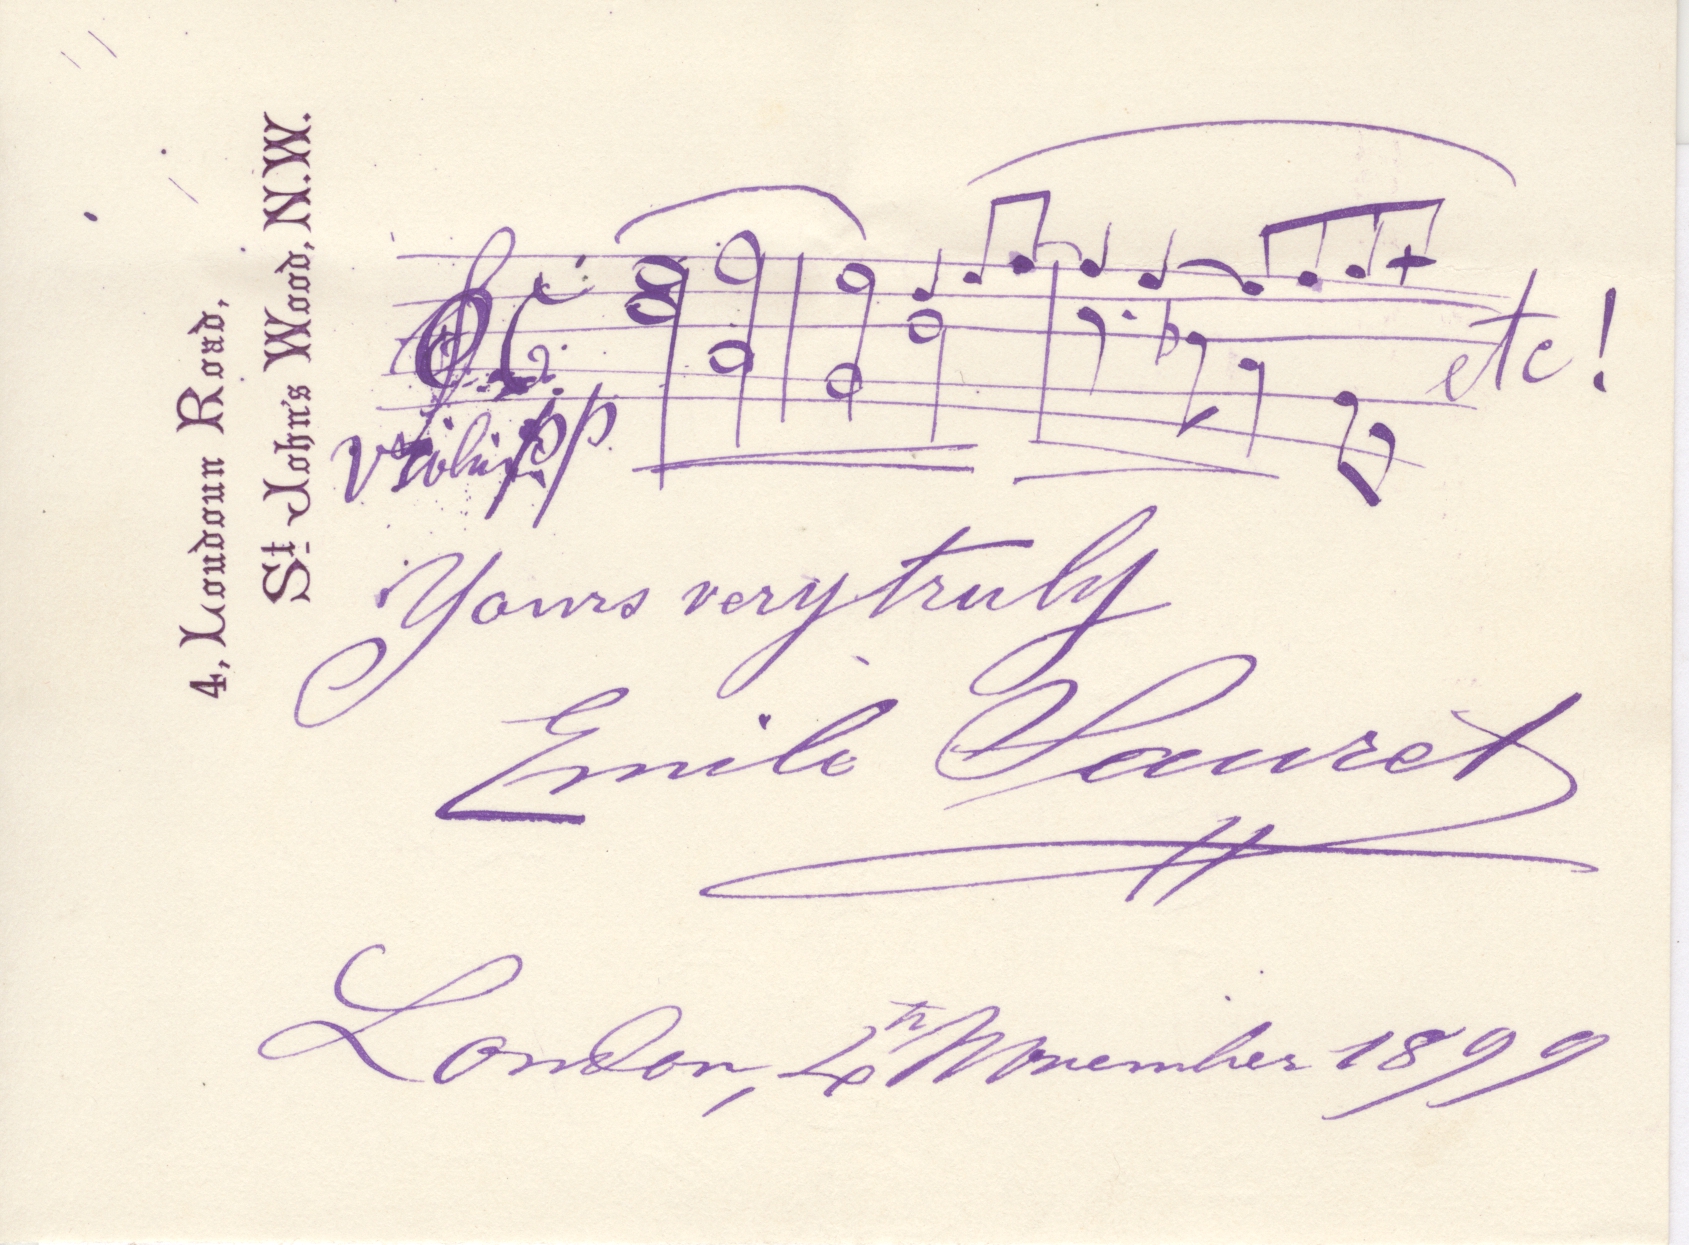 4, Loudoun Road,
St. John's Wood, N.W.
Violin pp
etc!
Yours very truly
Emile Sauret
London, 4th November 1899